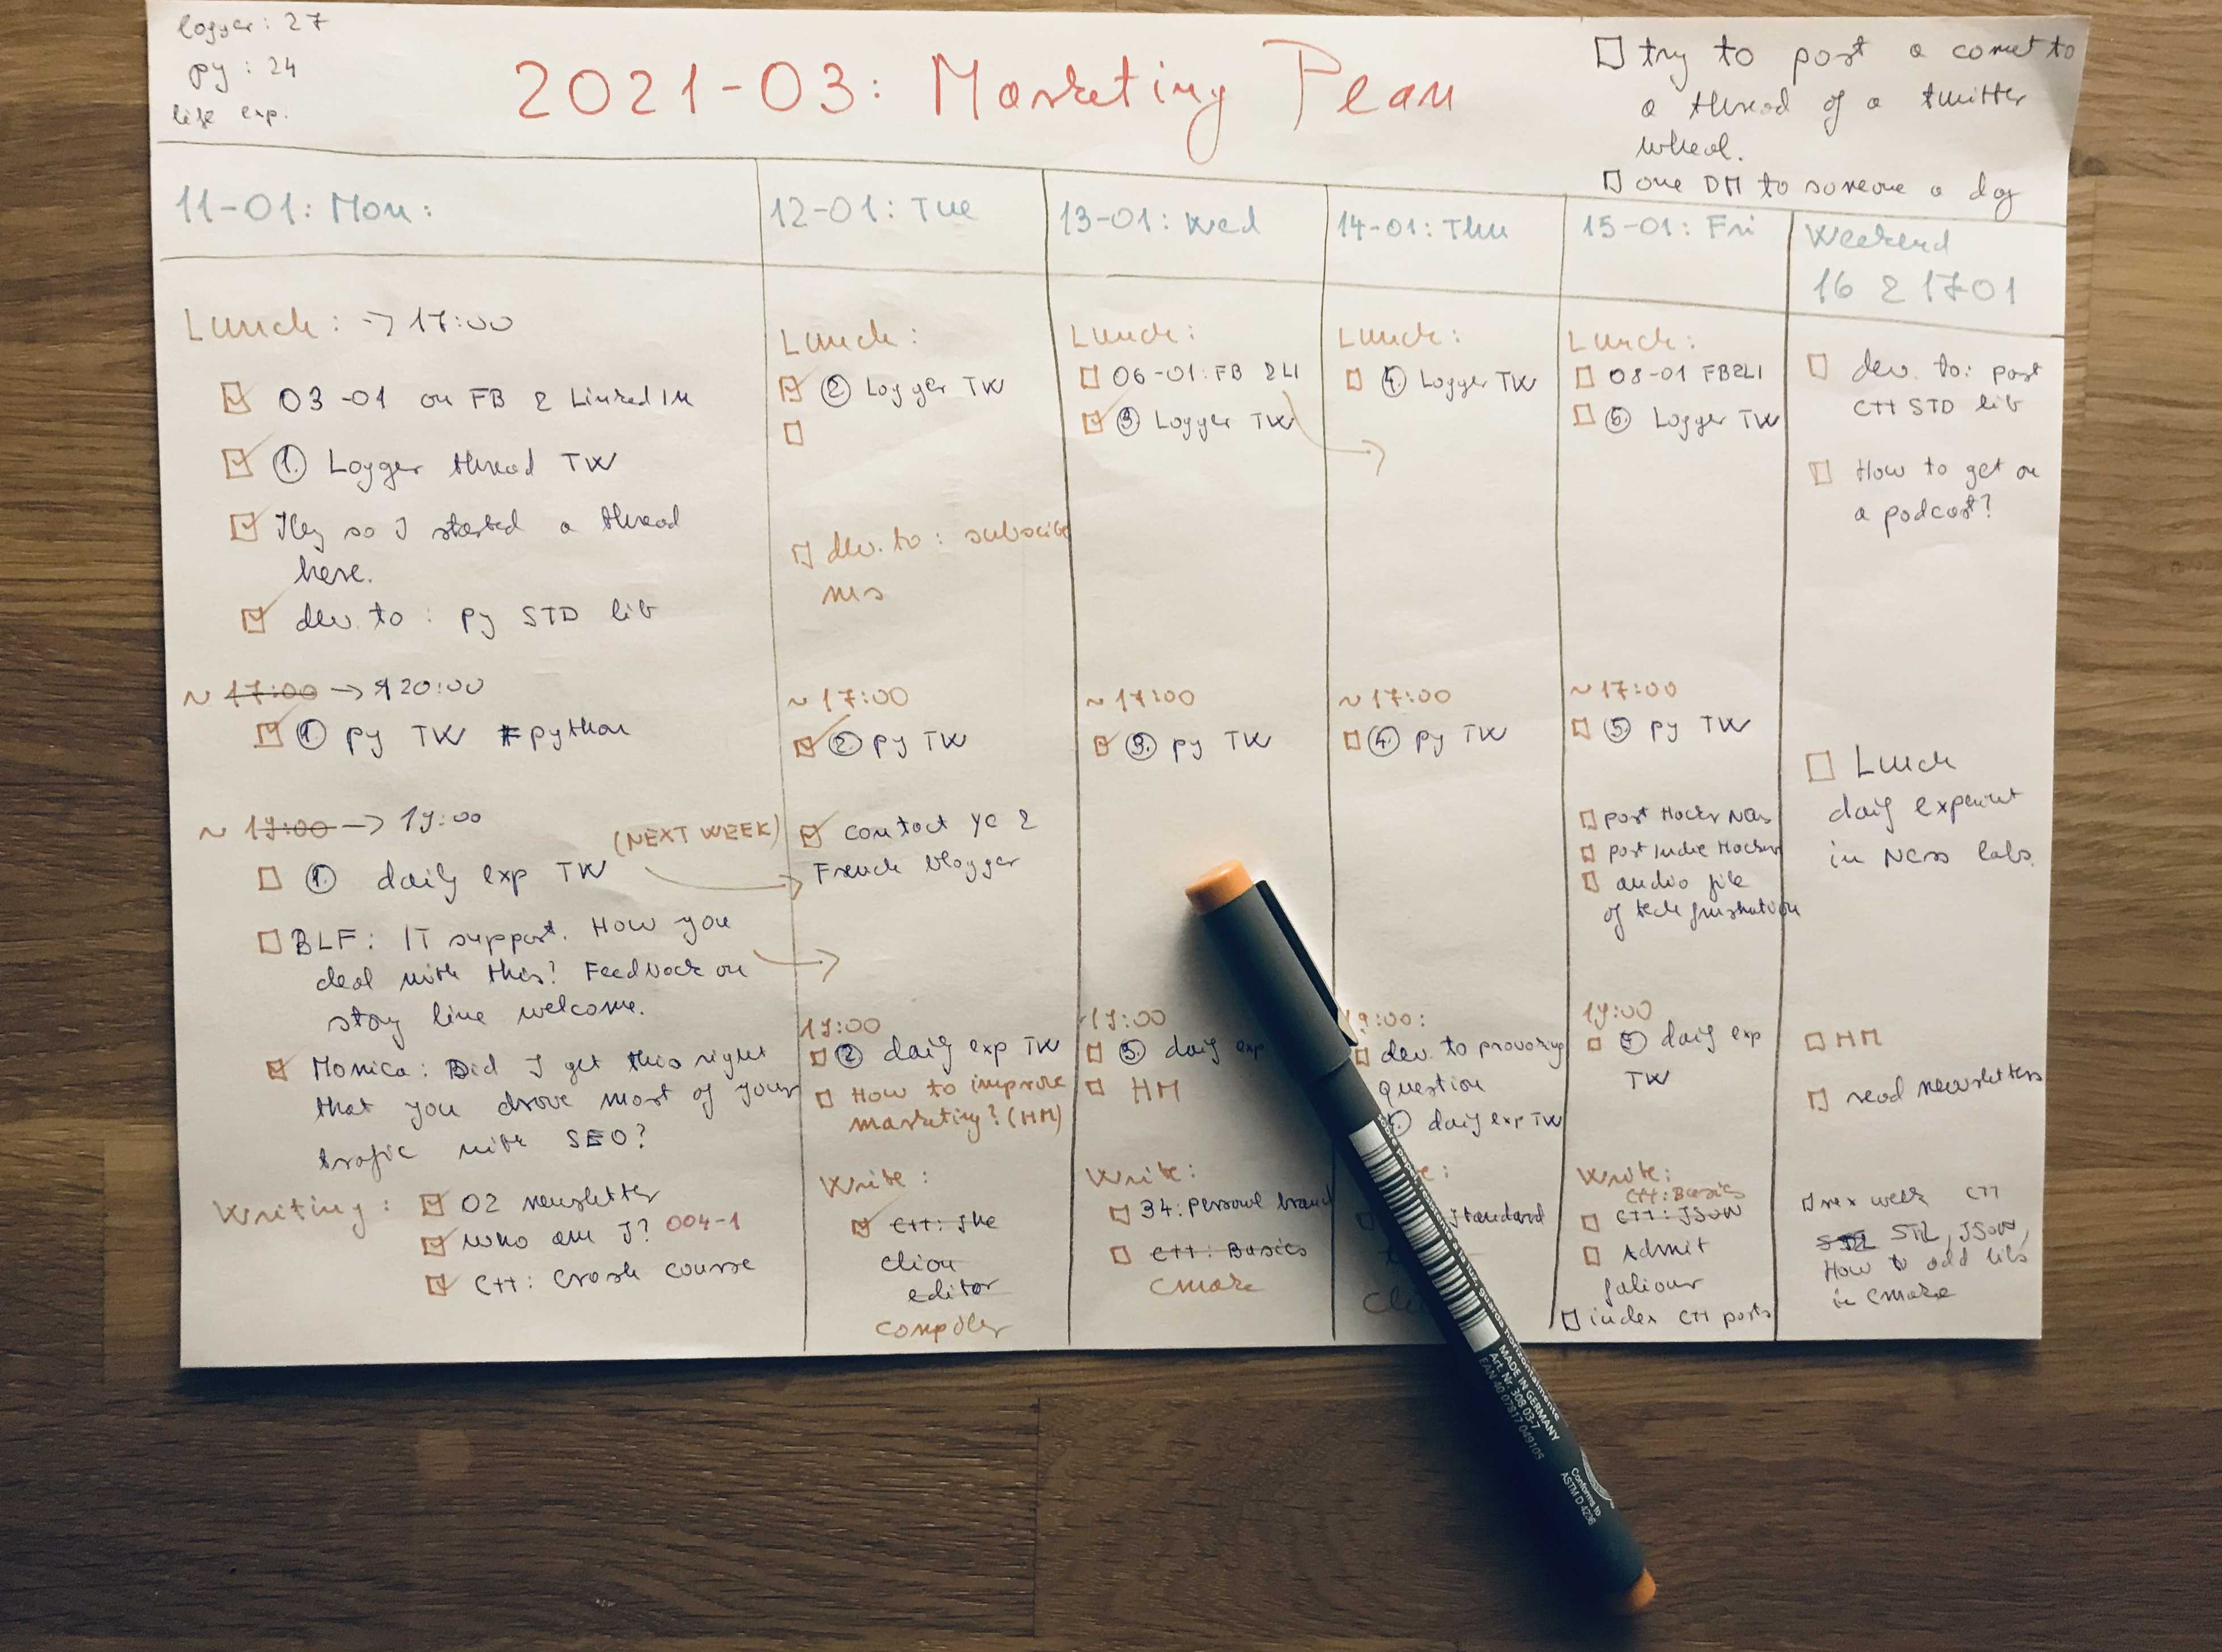 logger: 27
py : 24
life exp.
2021-03: Marketing Plan
try to post a comet to
a thread of a twitter
wheal.
one DM to someone a day
11-01: Mon:
Lunch: -> 17:00
03-01 on FB 2 LinkedIn
1. Logger thread TW
Hey so I started a thread
here.
dev.to : py STD lib
~ 17:00 -> 20:00
1 py TW #python
~ 19:00 -> 19:00
(NEXT WEEK)
1. daily exp TW
BLF: IT support. How you
deal with this? Feedback on
story line welcome.
Monica: Did I get this right
that you drove most of your
trafic with SEO?
Writing:
02 newsletter
who am I? 004-1
C++: Crash course
12-01: Tue
Lunch:
2 Logger TW
dev.to : subscribe
~ 17:00
2. py TW
contact yc 2
French blogger
19:00
2 daily exp TW
How to improve
marketing? (HM)
Write:
C++: The
Clion
editor
compiler
13-01: Wed
Lunch:
06-01: FB 2 LI
3 Logger TW
~ 17:00
3. py TW
19:00
3. daily exp
HM
Write:
34: Personal brand
C++: Basics
CMake
14-01: Thu
Lunch:
4. Logger TW
~ 17:00
4. py TW
19:00:
dev.to provoking
question
daily exp TW
Standard
15-01: Fri
Lunch:
08-01 FB2LI
5. Logger TW
~ 17:00
5. py TW
post Hacker News
post Indie Hackers
audio file
of tech frustration
19:00
5 daily exp
TW
Write:
C++: Basics
C++: JSON
Admit
faliour
index C++ posts
Weekend
16 2 17-01
dev.to: post
C++ STD lib
How to get on
a podcast?
Lunch
daily expeint
in Ness labs.
HM
read newsletters
nex week C++
STL, JSON,
How to add libs
in CMake
guarda horizontalmente
MADE IN GERMANY
Art. Nr. 308 03-7
EAN 40 07817 049105
Conforms to
ASTM D-4236